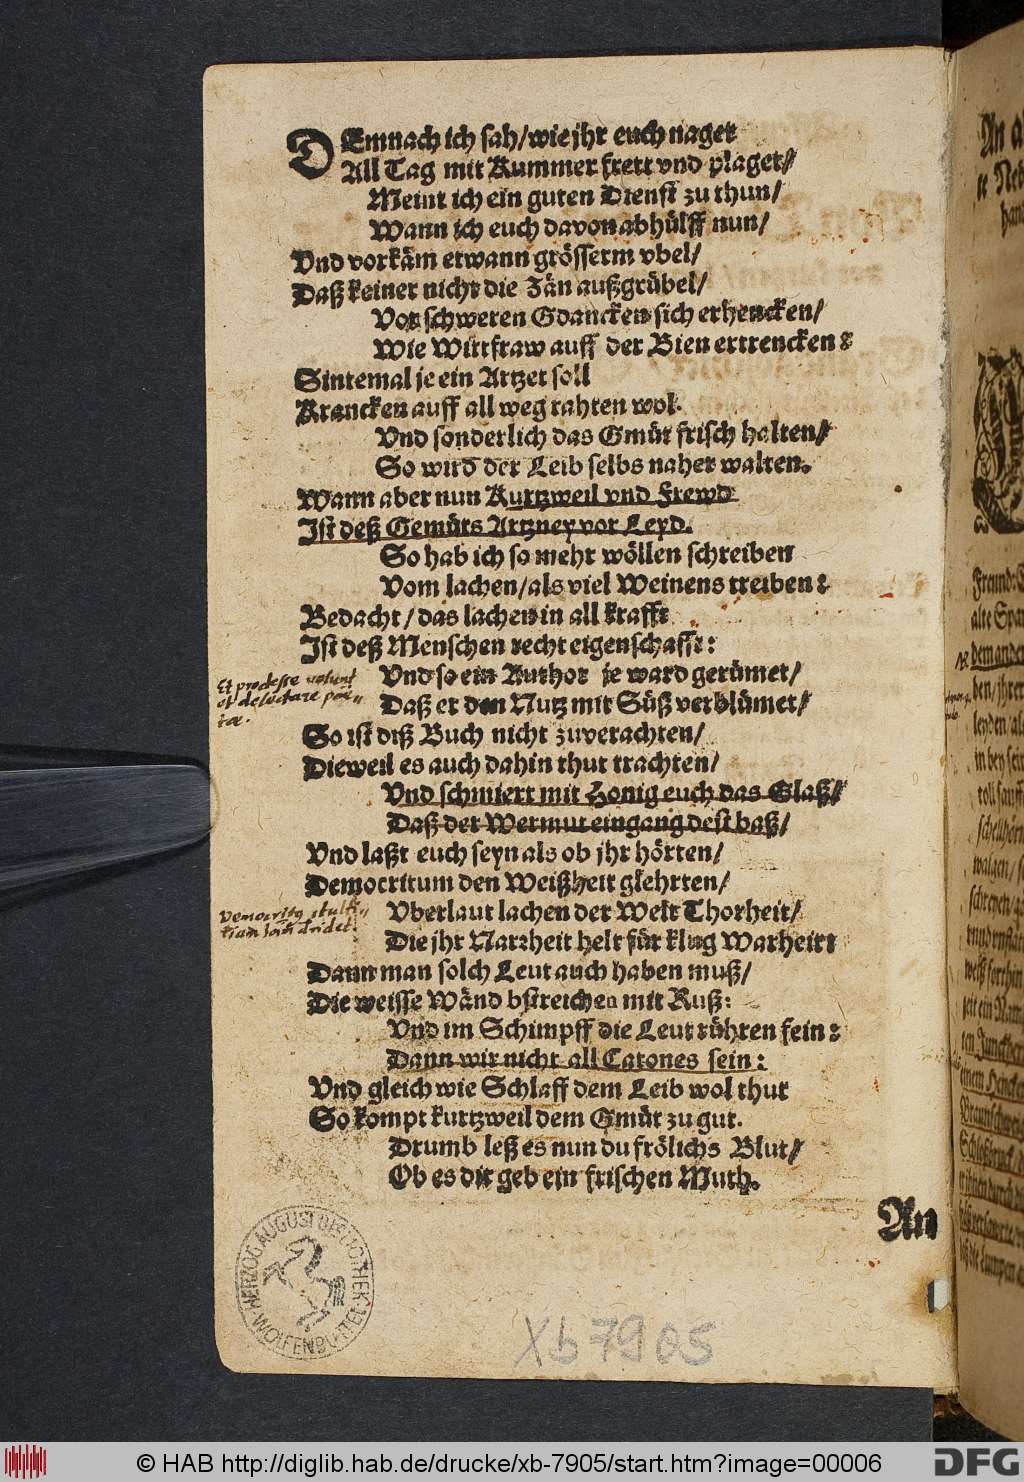 DEmnach ich sah/wie jhr euch naget
All Tag mit Kummer frett vnd plaget/
Meint ich ein guten Dienst zu thun/
Wann ich euch davon abhülff nun/
Vnd vorkäm etwann grösserm vbel/
Daß keiner nicht die Zän außgrübel/
Vor schweren Gdancken sich erhencken/
Wie Wirtfraw auff der Bien ertrencken:
Sintemal je ein Artzet soll
Krancken auff all weg rahten wol.
Vnd sonderlich das Gmüt frisch halten/
So wird der Leib selbs naher walten.
Wann aber nun Kurtzweil vnd Frewd
Ist deß Gemüts Artzney vor Leyd.
So hab ich so mehr wöllen schreiben
Vom lachen/als viel Weinens treiben:
Bedacht/das lachen in all krafft
Ist deß Menschen recht eigenschafft:
Et prodesse volunt
et delectare poë-
tæ.
Vnd so ein Author je ward gerümet/
Daß er den Nutz mit Süß verblümet/
So ist diß Buch nicht zuverachten/
Dieweil es auch dahin thut trachten/
Vnd schmiert mit Honig euch das Glaß/
Daß der Wermut eingang dest baß/
Vnd laßt euch seyn als ob jhr hörten/
Democritum den Weißheit glehrten/
Democritus stulti-
tiam
Vberlaut lachen der Welt Thorheit/
Die jhr Narrheit helt für klug Warheit:
Dann man solch Leut auch haben muß/
Die weisse Wänd bstreichen mit Ruß:
Vnd im Schimpff die Leut rühren fein:
Dann wir nicht all Catones sein:
Vnd gleich wie Schlaff dem Leib wol thut
So kompt kurtzweil dem Gmüt zu gut.
Drumb leß es nun du frölichs Blut/
Ob es dir geb ein frischen Muth.
An
HERZOG AUGUST BIBLIOTHEK
WOLFENBÜTTEL
Xb 7905
An a
handl
Freund
alte Spa
dem andern
© HAB http://diglib.hab.de/drucke/xb-7905/start.htm?image=00006
DFG